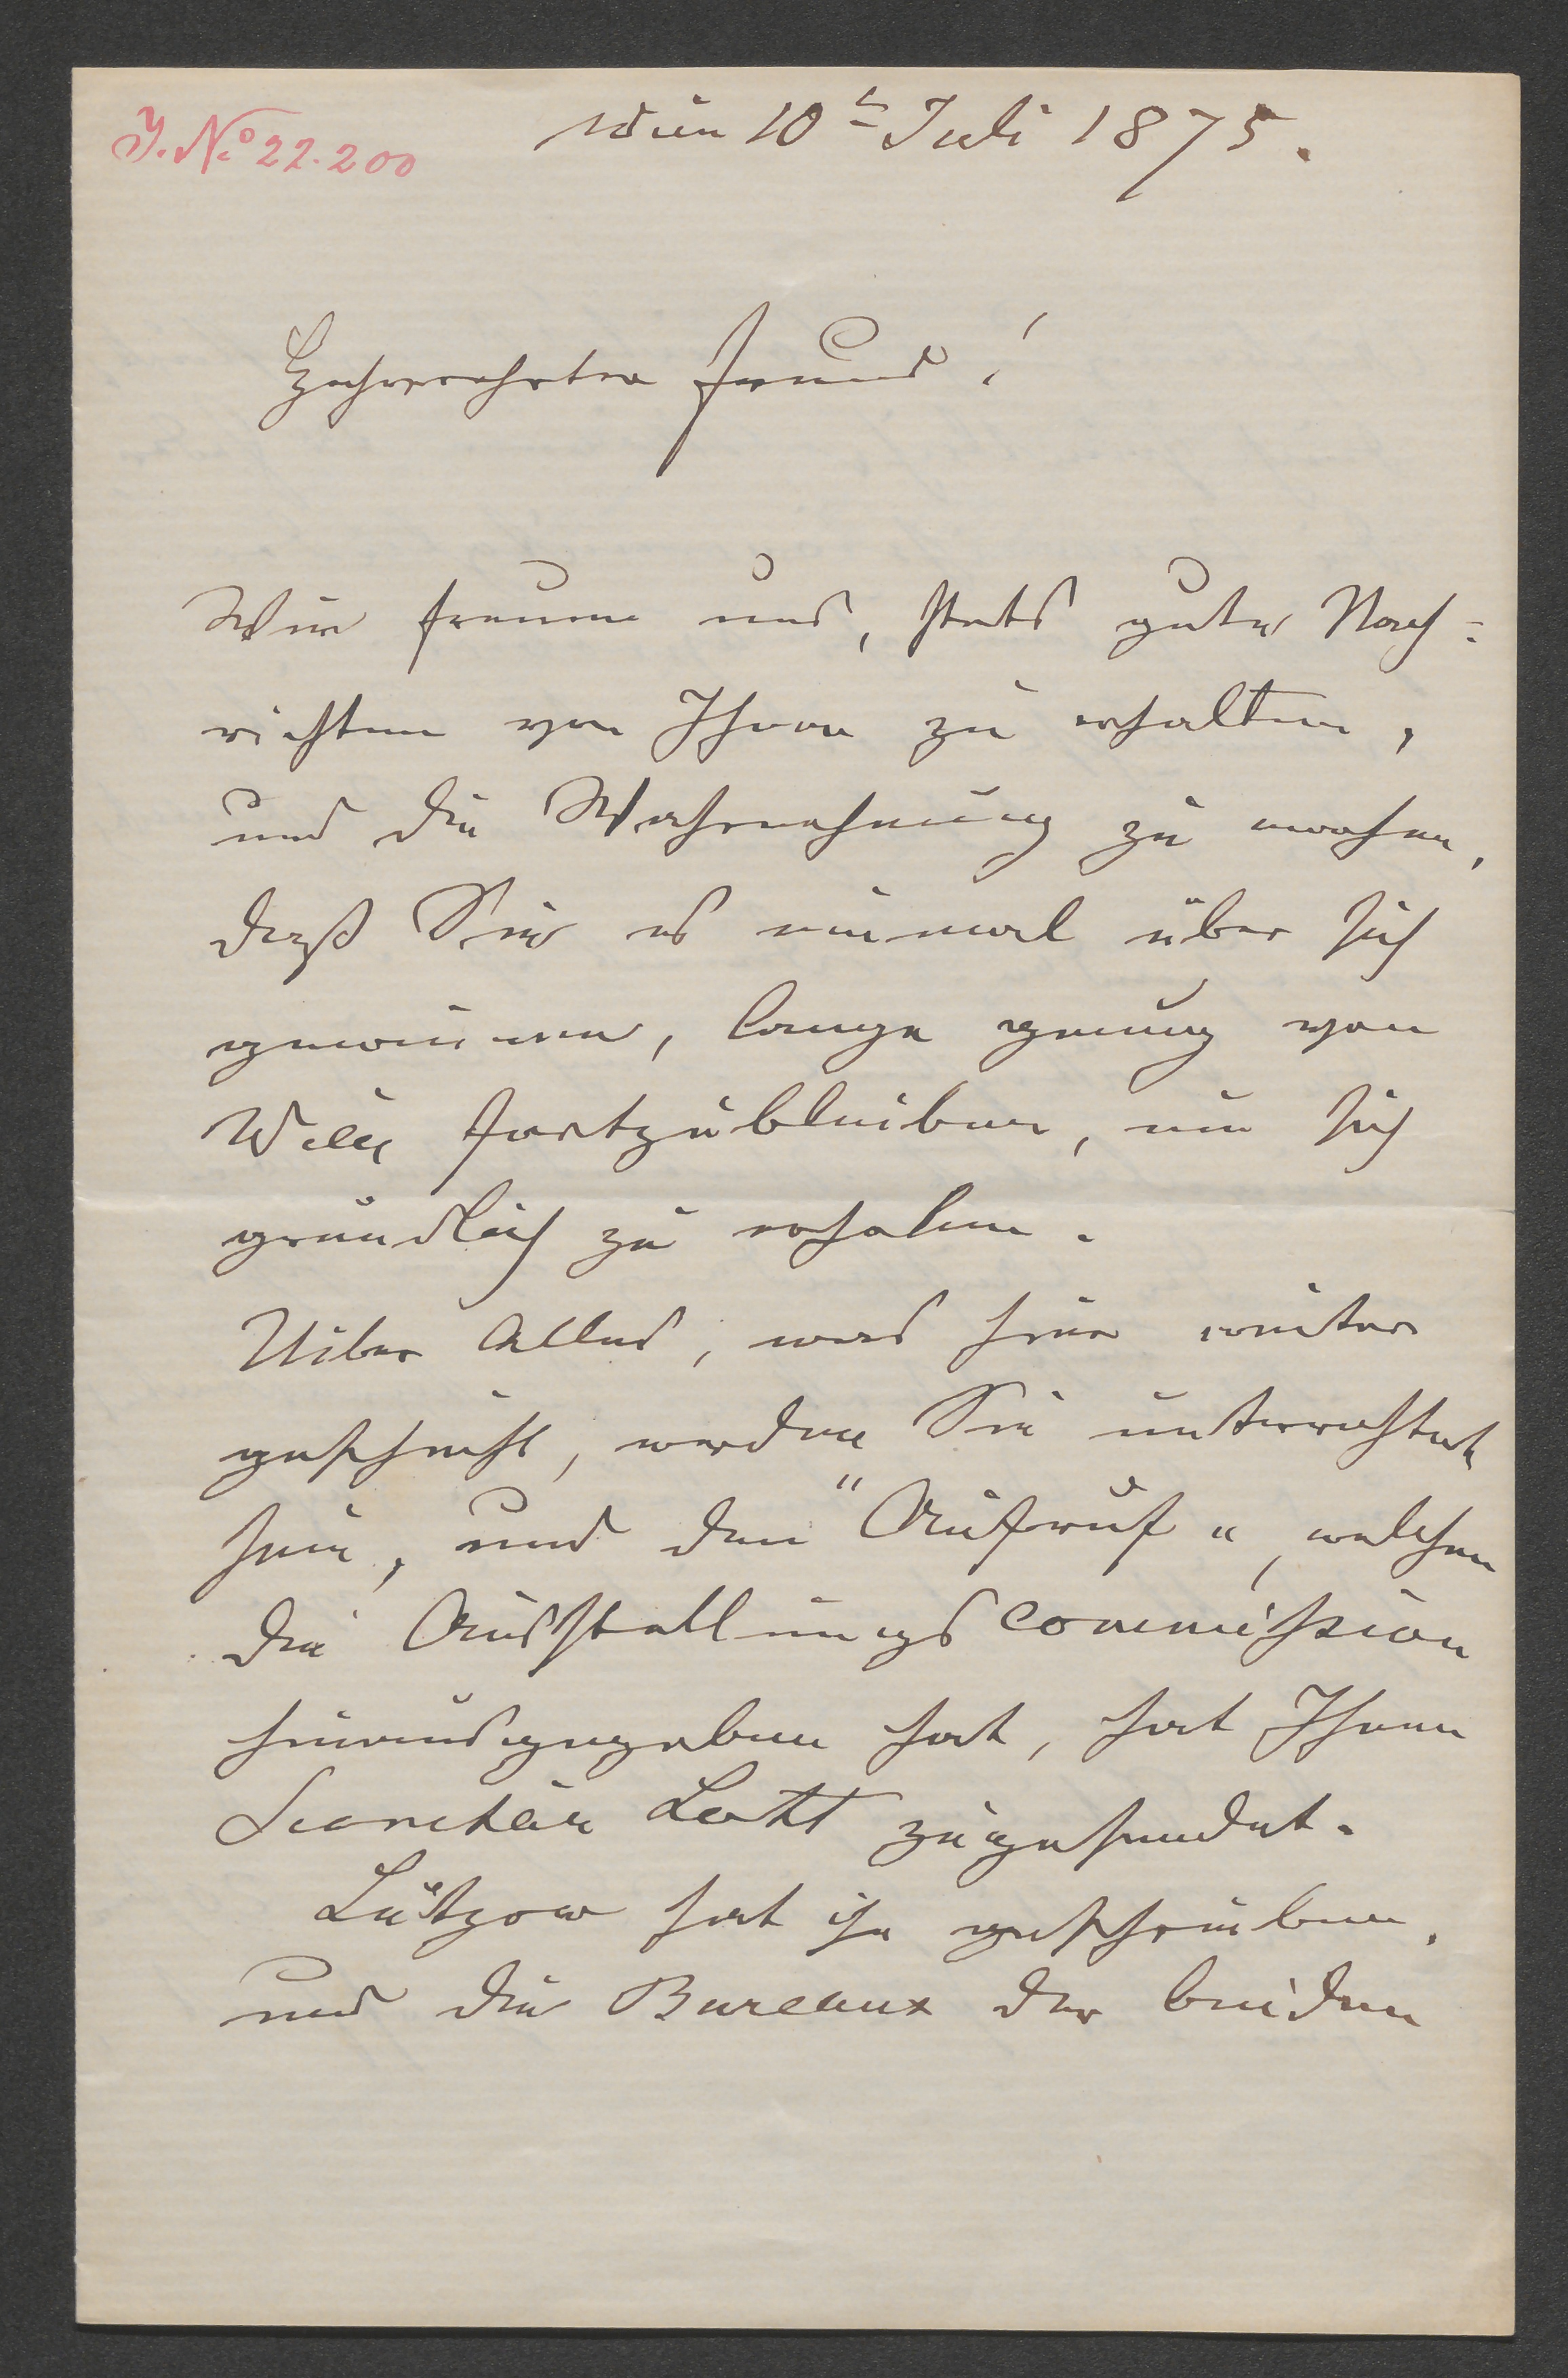 J. No 22.200
Wien 10t Juli 1875.
Hochverehrter Freund!
Wir freuen uns, stets gute Nach=
richten von Ihnen zu erhalten,
und die Wahrnehmung zu machen,
daß Sie es einmal über sich
gewinnen, lange genug von
Wien fortzubleiben, um sich
gründlich zu erholen.
Uiber Alles, was hier weiter
geschieht, werden Sie unterrichtet
sein, und den "Aufruf", welchen
die Ausstellungscommission
hinausgegeben hat, hat Ihnen
Secretär Lott zugesendet.
Lützow hat ihn geschrieben,
und die Bureaux der beiden